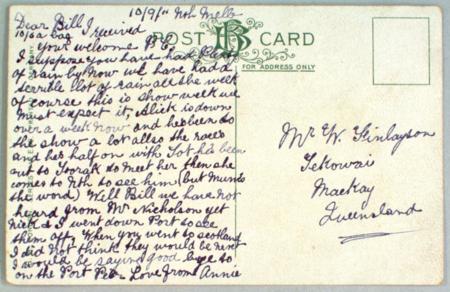 10/9/11 Nth Melb
Dear Bill, I received
your welcome P C
POST CARD
FOR ADDRESS ONLY
I suppose you have had
of rain by now we have had a
terrible lot of rain all the week
of course this is show week we
must expect it, Alick is down
over a week now and has been to
the show a lot allso the races
and hes half on with Tot has been
out to Toorak to meet her then she
comes to Nth to see him (but mums
the word) Well Bill we have not
heard from Mr Nicholson yet
Nick & I went down Port to see
them off, When you went to scotland
I did not think they would be next
I would be saying good bye to
on the Port Pe Love from Annie
Mr W. Finlayson
Tekowai
Mackay
Queensland